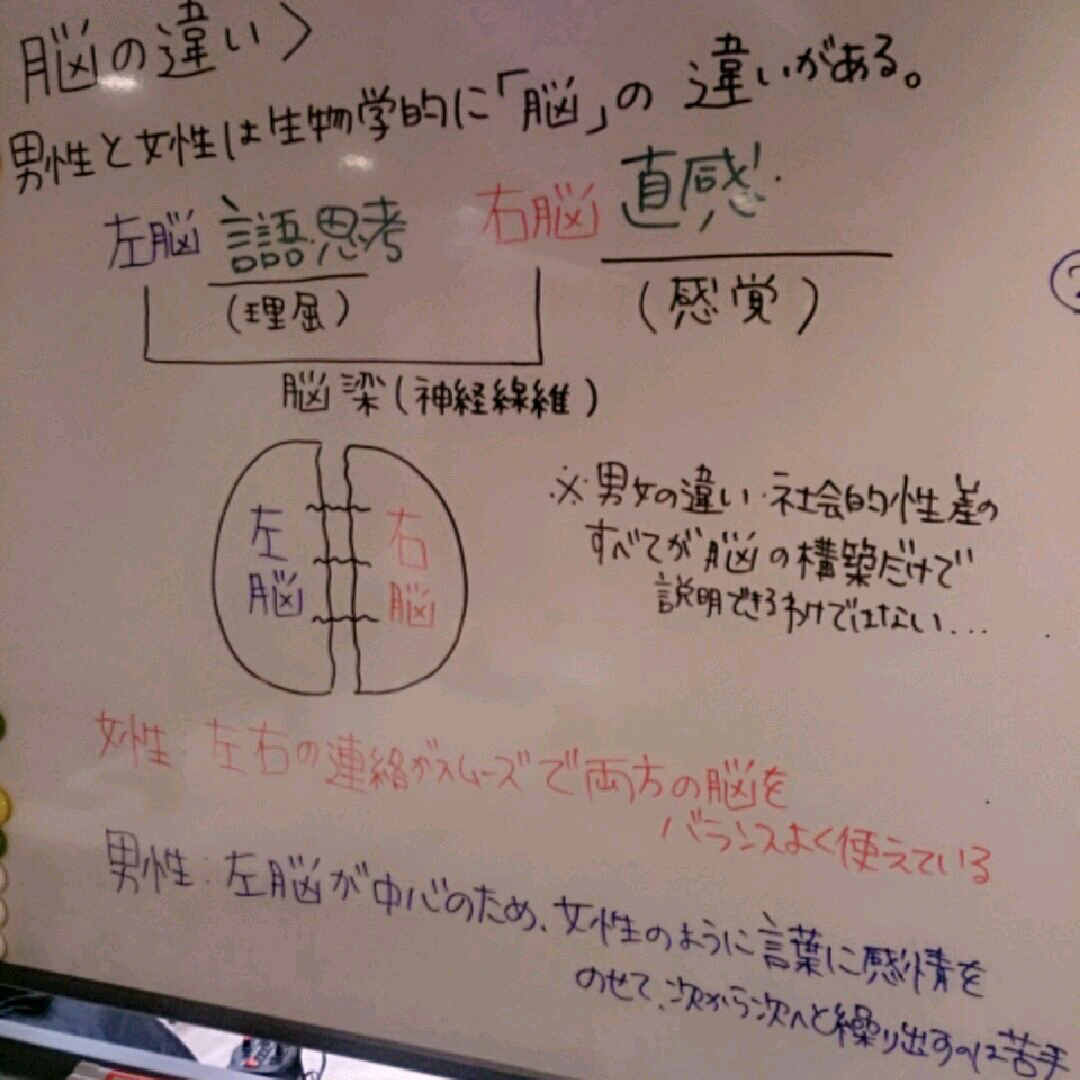 脳の違い〉
男性と女性は生物学的に「脳」の違いがある。
左脳 言語・思考 右脳 直感・
(理屈) (感覚)
脳梁(神経線維)
左脳 右脳
※男女の違い・社会的性差の
すべてが脳の構築だけで
説明できるわけではない...
女性:左右の連絡がスムーズで両方の脳を
バランスよく使えている
男性:左脳が中心のため、女性のように言葉に感情を
のせて、次から次へと繰り出すのは苦手